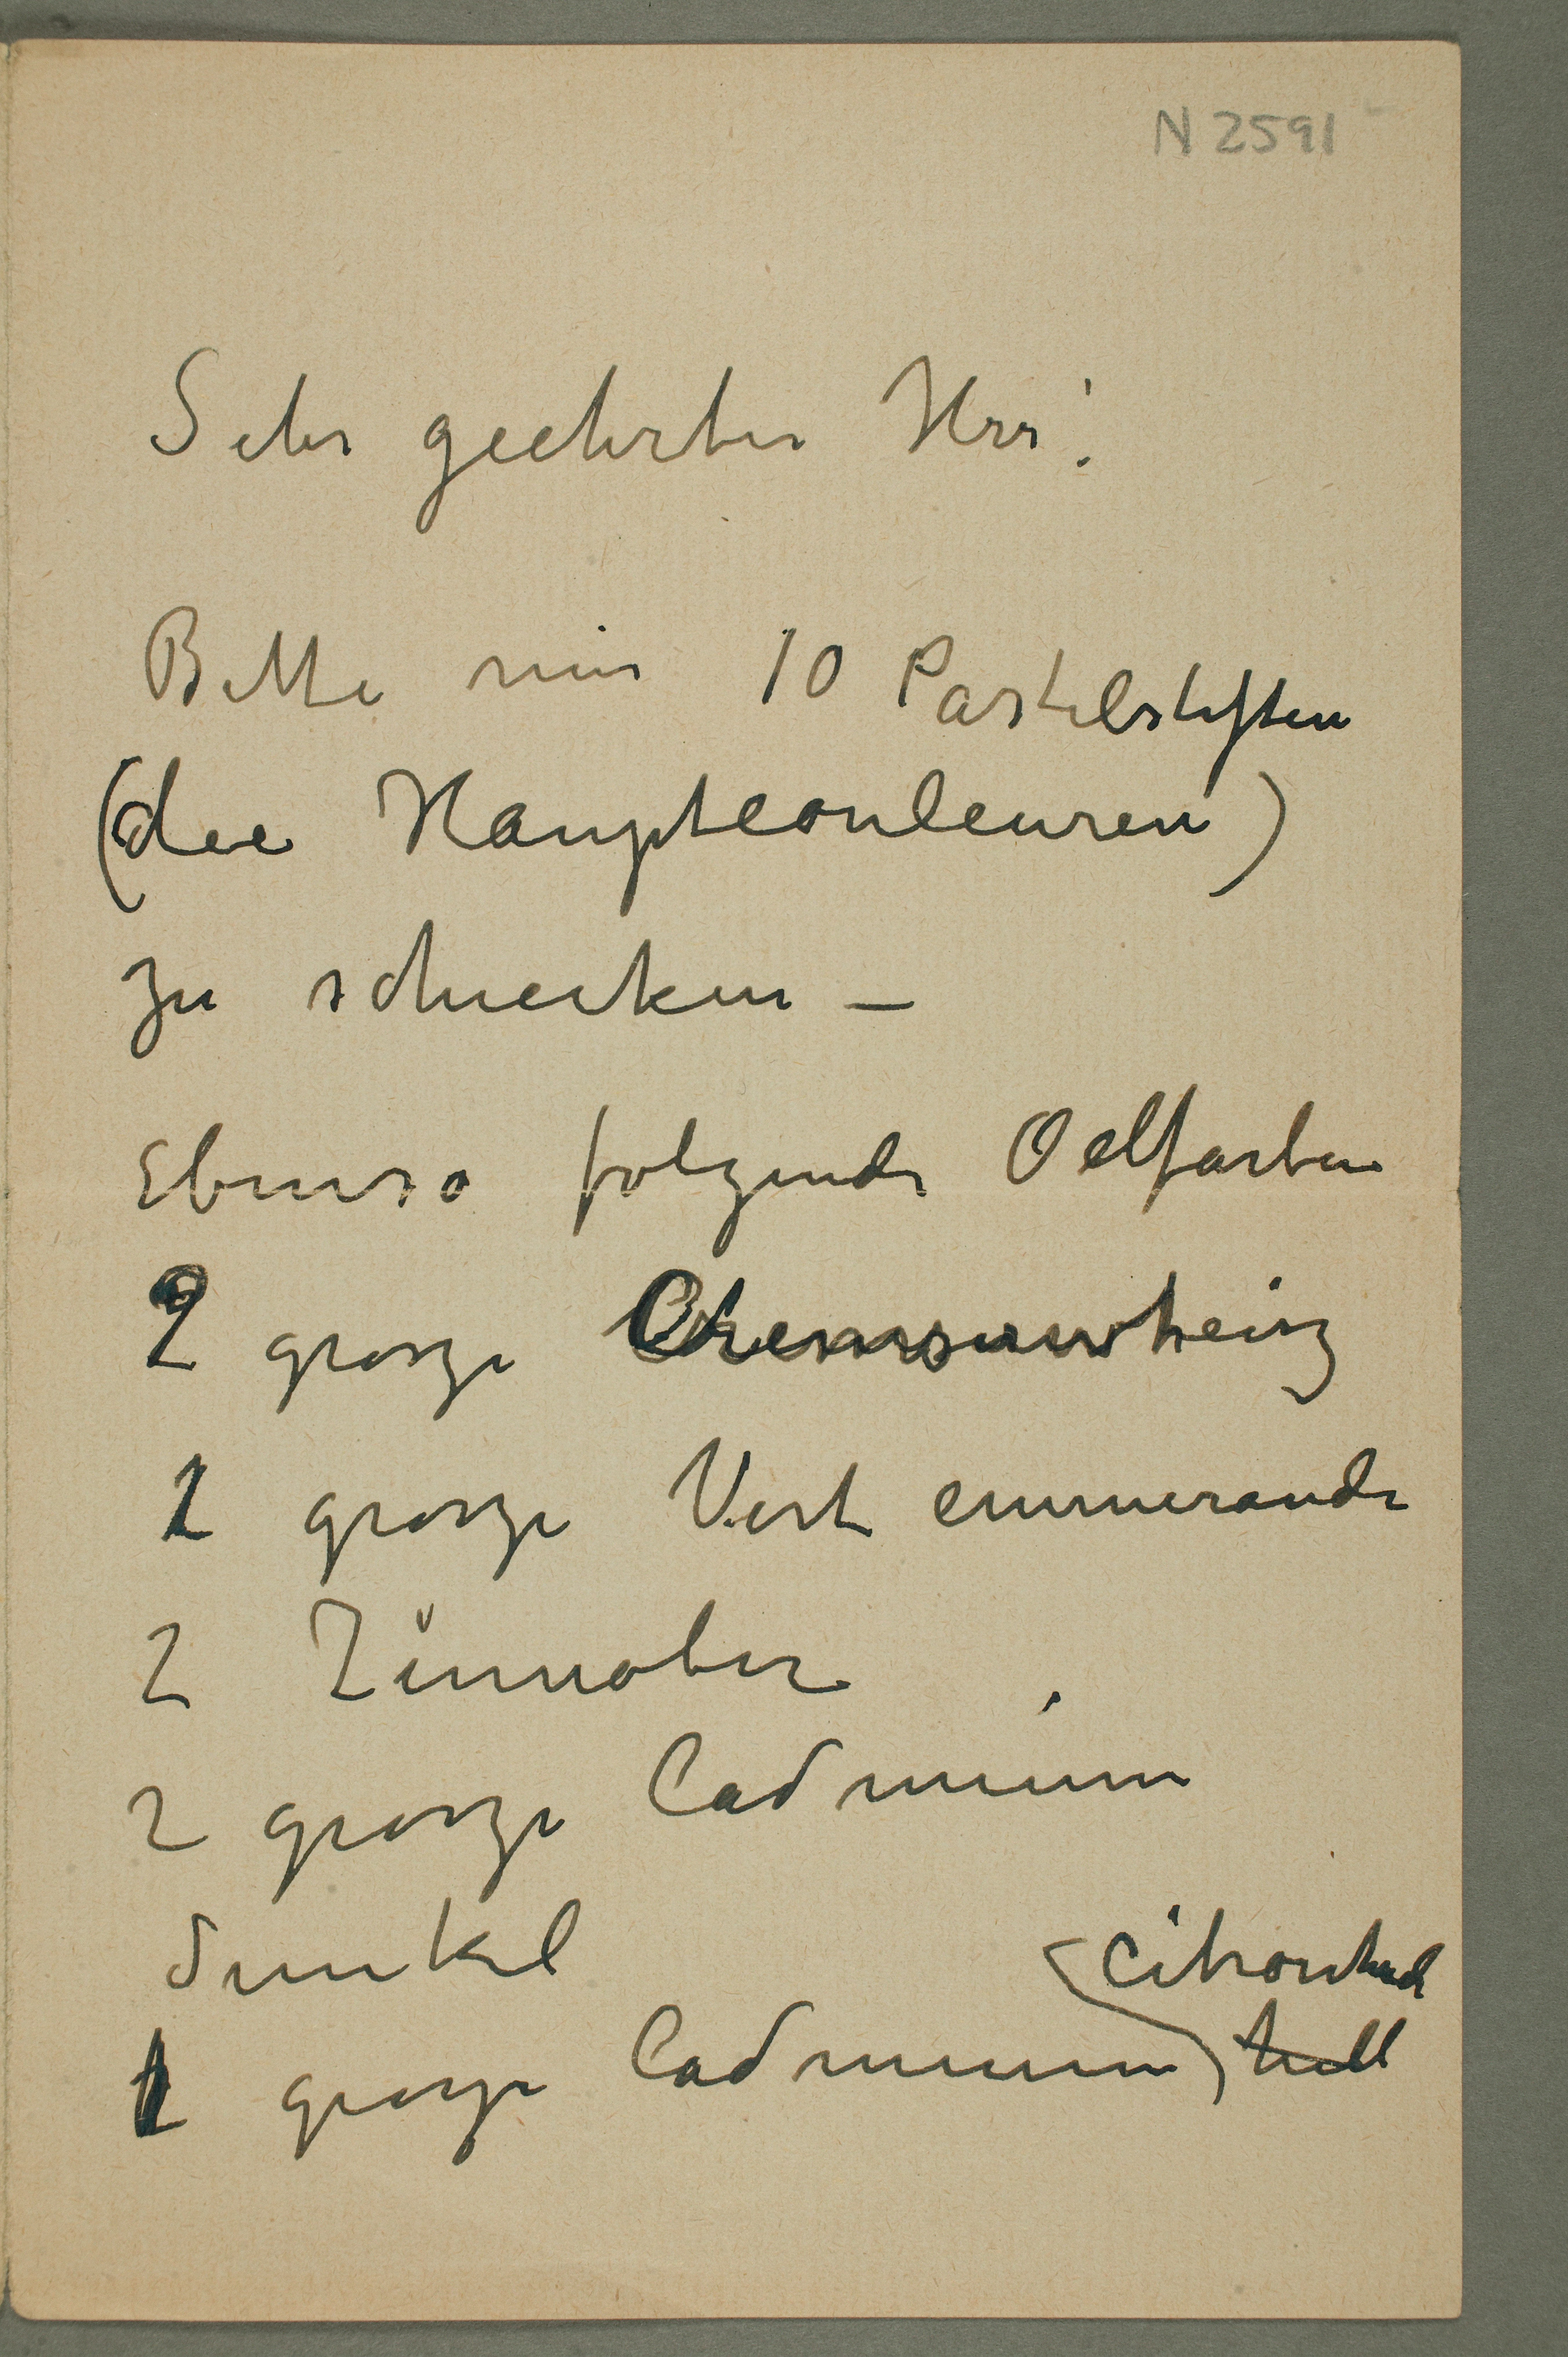 N 2591
Sehr geehrter Herr!
Bitte mir 10 Pastelstiften
(die Hauptcouleuren)
zu schicken –
Ebenso folgende Oelfarben
2 grosze Cremserweisz
1 grosze Vert emmeraude
2 Zinnober
2 grosze Cadmium
dunkel
citron
1 grosze Cadmium hell